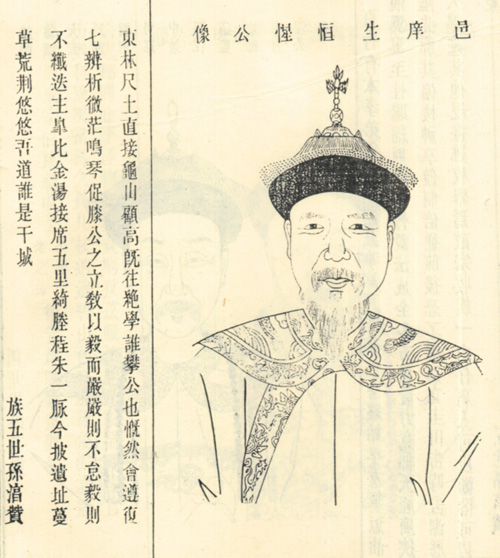 邑庠生恒惺公像
東林尺土直接龜山顧高旣往絶學誰攀公也慨然會遵復
七辨析微茫鳴琴促膝公之立敎以毅而嚴嚴則不怠毅則
不纖迭主臯比金湯接席五里綺塍程朱一脈今披遺址蔓
草荒荆悠悠吾道誰是干城
族五世孫湻贊